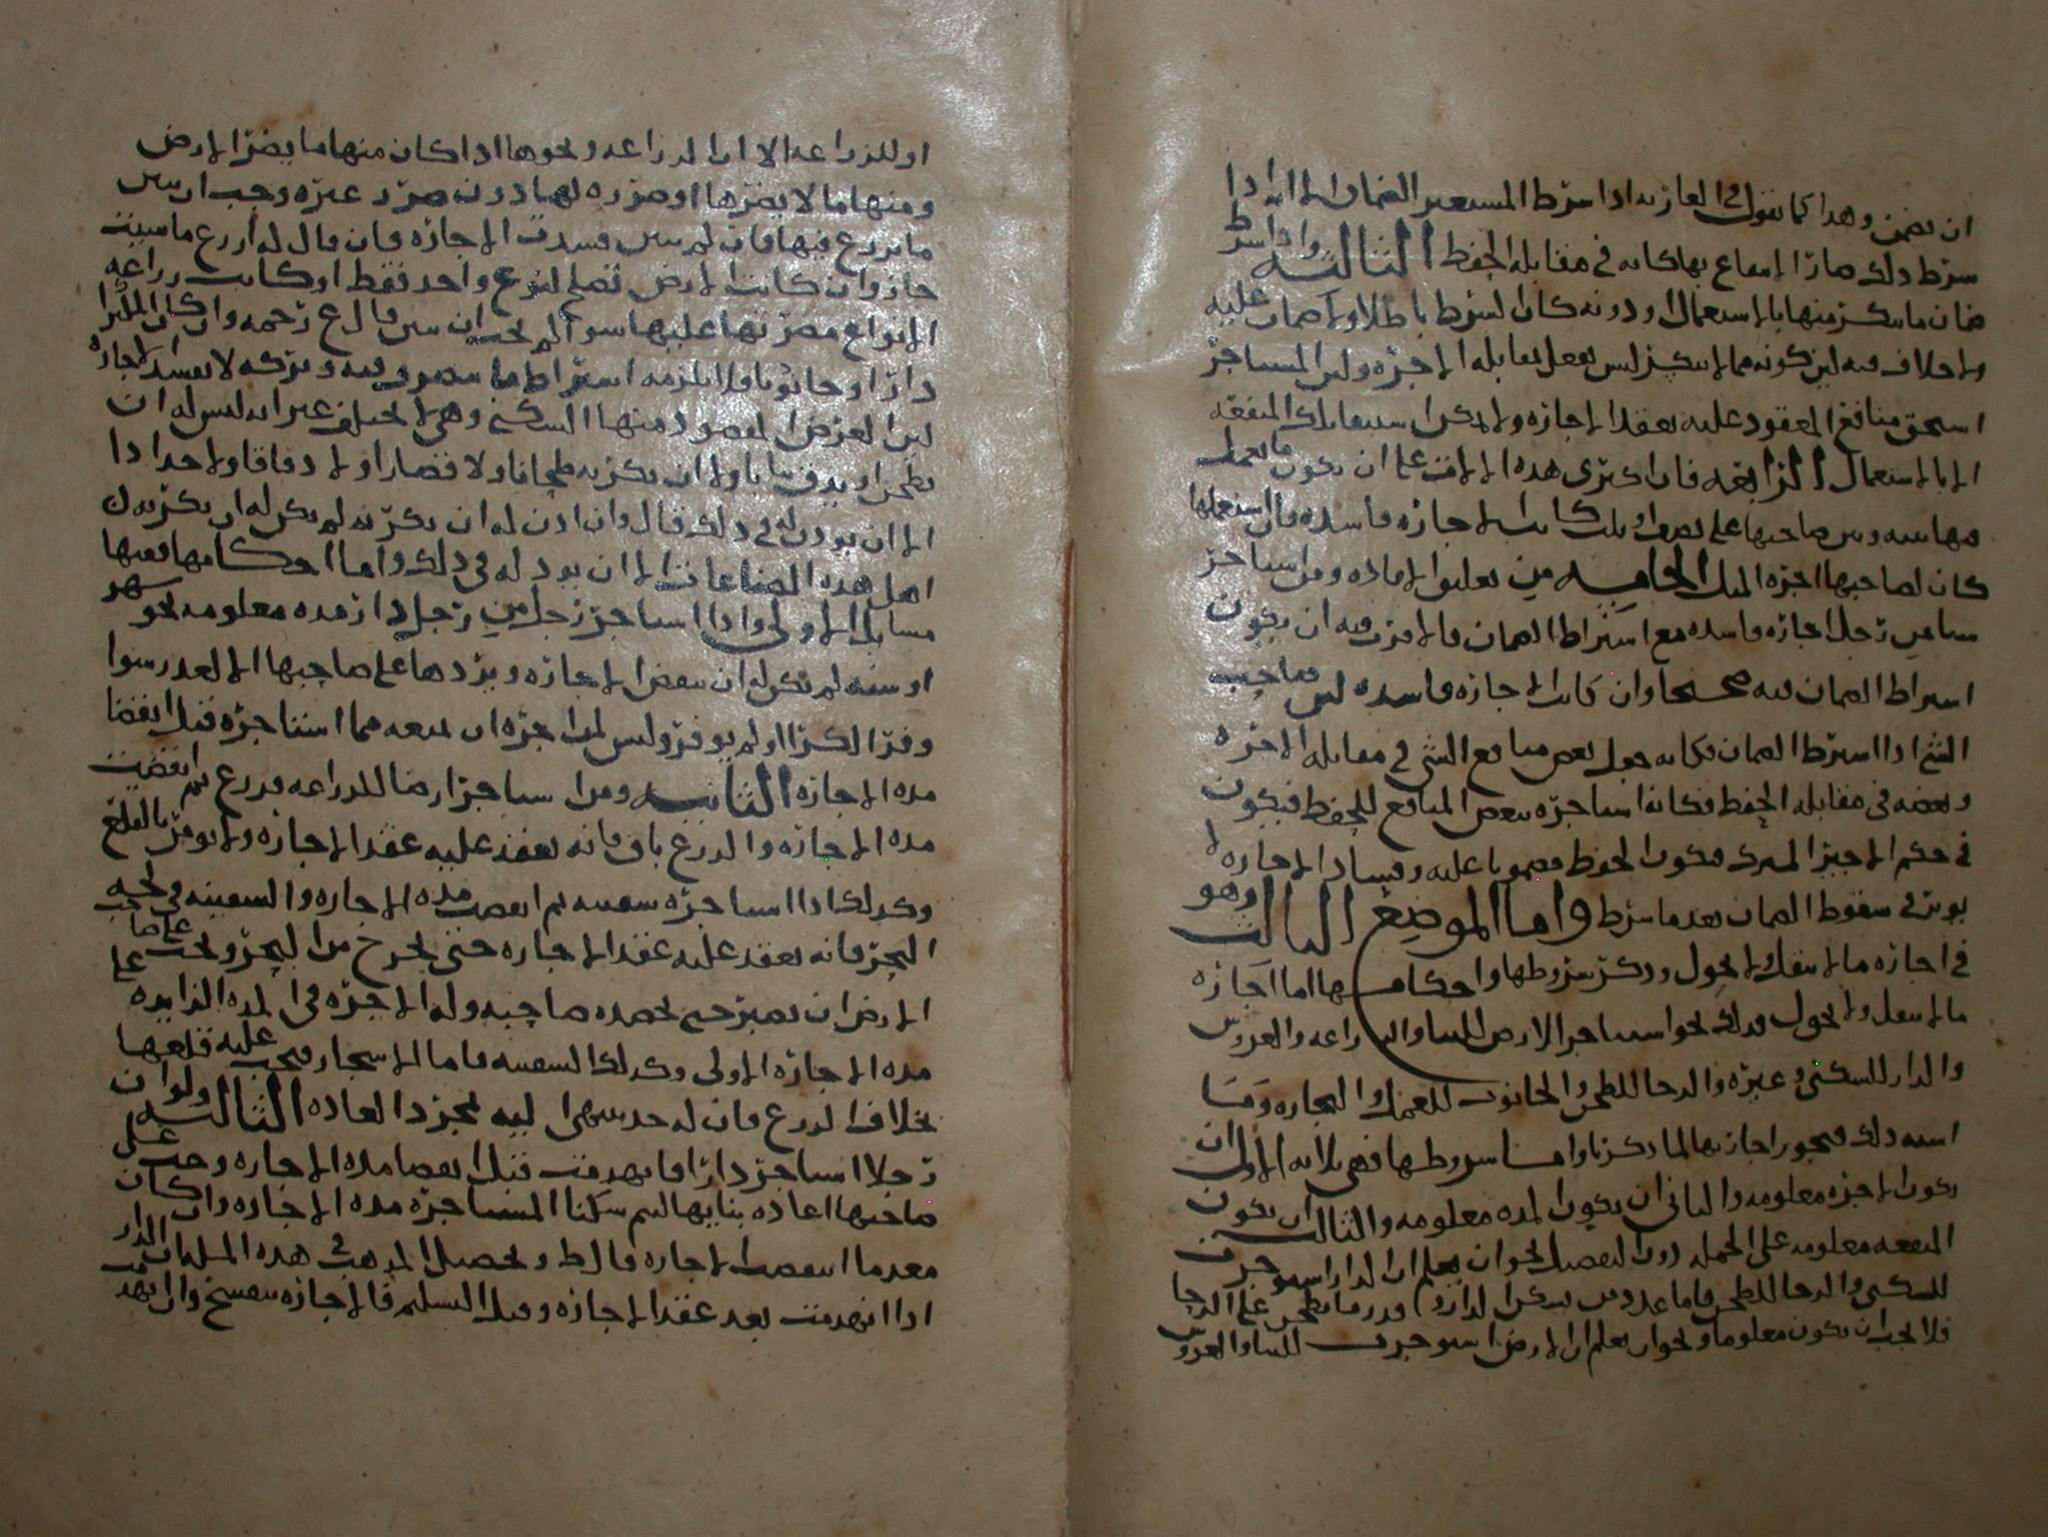 ان يضمن وهذا كما نقول في العارية اذا شرط المستعير الضمان لانه اذا
شرط ذلك صار الانتفاع بها كانه في مقابلة الحفظ الثالثة واذا شرط
ضمان ما ينكسر منها بالاستعمال او دونه كان الشرط باطلا ولا ضمان عليه
ولا خلاف فيه لان كونه مما لا ينكسر ليس بفعل يقابله الاجرة ولان المستاجر
استحق منافع المعقود عليه بعقد الاجارة ولا يمكن استيفا تلك المنفعة
الا بالاستعمال الرابعة فان اكترى هذه الالات على ان يكون ما يعمل
بها بينه وبين صاحبها على نصف او ثلث كانت الاجارة فاسدة فان استعملها
كان لصاحبها اجرة المثل الخامسة من تعليق الافادة ومن استاجر
شيا من رجل اجارة فاسدة مع اشتراط الضمان فالاقرب فيه ان يكون
اشتراط الضمان فيه صحيحا وان كانت الاجارة فاسدة لان صاحب
الشي اذا اشترط الضمان فكانه جعل بعض منافع الشي في مقابلة الاجرة
وبعضه في مقابلة الحفظ فكانه استاجره ببعض المنافع للحفظ فيكون
في حكم الاجير المشترك فيكون الحفظ مضمونا عليه وفساد الاجارة لا
يوثر في سقوط الضمان بعد ما شرط واما الموضع الثالث وهو
في اجارة ما لا ينقل ولا يحول وذكر شروطها واحكامها اما اجارة
ما لا ينقل ولا يحول فذلك نحو استيجار الارض للبنا والزراعة والغروس
والدار للسكنى وغيره والرحا للطحن والحانوت للعمل والتجارة وما
اشبه ذلك فيجوز اجارتها لما ذكرنا واما شروطها فهي ثلاثة الاول ان
يكون الاجرة معلومة والثاني ان يكون المدة معلومة والثالث ان يكون
المنفعة معلومة على الجملة دون التفصيل نحو ان يعلم ان الدار استوجرت
للسكنى والرحا للطحن فاما عدد من يسكن الدار وقدر ما يطحن على الرحا
فلا يجب ان يكون معلوما ونحو ان يعلم ان الارض استوجرت للبنا والغروس
او للزراعة الا ان الزراعة ونحوها اذا كان منها ما يضر الارض
ومنها ما لا يضرها او ضرره لها دون ضرر غيره وجب ان يبين
ما يزرع فيها فان لم يبين فسدت الاجارة فان قال له ازرع ما شيت
جاز وان كانت الارض تصلح لنوع واحد فقط او كانت زراعة
الانواع مضرتها عليها سوا لم يجب ان يبين قال ع رحمه وان كان المكترا
دارا او حانوتا فلا يلزمه اشتراط ما يتصرف فيه وتركه لا يفسد الاجارة
لان الغرض المقصود منها السكنى وهي لا تختلف غير انه ليس له ان
يطحن او يدق ثيابا ولا ان يكريه طحانا ولا قصارا ولا دقاقا ولا حدادا
الا ان يوذن له في ذلك قال وان اذن له ان يكريه لم يكن له ان يكريه من
اهل هذه الصناعات الا ان يوذن له في ذلك واما احكامها ففيها
مسايل الاولى واذا استاجر رجل من رجل دارا مدة معلومة نحو شهر
او سنة لم يكن له ان ينقض الاجارة ويردها على صاحبها الا لعذر سوا
وفر الكرا او لم يوفر وليس لمن اجره ان يمنعه مما استاجره قبل انقضا
مدة الاجارة الثانية ومن استاجر ارضا للزراعة فزرع ثم انقضت
مدة الاجارة والزرع باق فانه يعقد عليه عقد الاجارة ولا يومر بالقلع
وكذلك اذا استاجره سفينة ثم انقضت مدة الاجارة والسفينة في لجة
البحر فانه يعقد عليه عقد الاجارة حتى يخرج من البحر ويجب على صاحب
الارض ان يصبر حتى يحصده صاحبه وله الاجرة في المدة الزايدة على
مدة الاجارة الاولى وكذلك السفينة فاما الاشجار فيجب عليه قلعها
بخلاف الزرع فان له حد ينتهي اليه بمجرد العادة الثالثة ولو ان
رجلا استاجر دارا فانهدمت قبل انقضا مدة الاجارة وجب على
صاحبها اعادة بنايها ليتم سكنا المستاجر مدة الاجارة وان كان
معدما انتقضت الاجارة قال ط وتحصيل المذهب في هذه المسلة ان الدار
اذا انهدمت بعد عقد الاجارة وقبل التسليم فالاجارة تنفسخ وان انهدمت